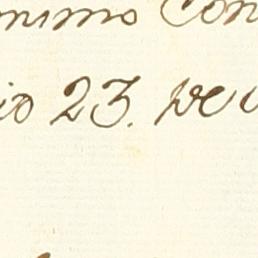 nimo Con
io 23. ve